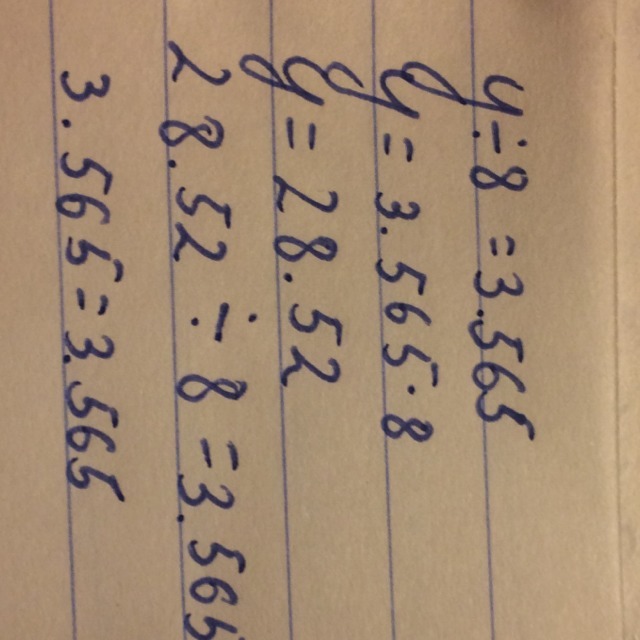 y ÷ 8 = 3.565
y = 3.565 · 8
y = 28.52
28.52 ÷ 8 = 3.565
3.565 = 3.565